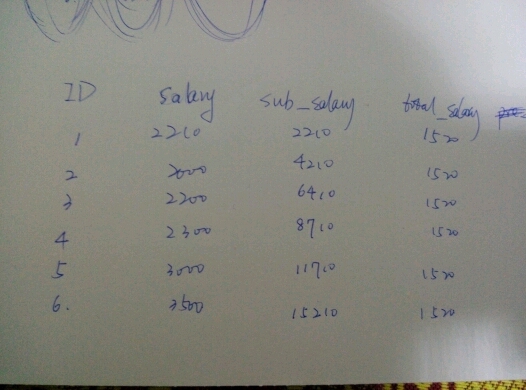 ID salary sub_salary total_salary
1 2210 2210 1520
2 2000 4210 1520
3 2200 6410 1520
4 2300 8710 1520
5 3000 11710 1520
6. 3500 15210 1520